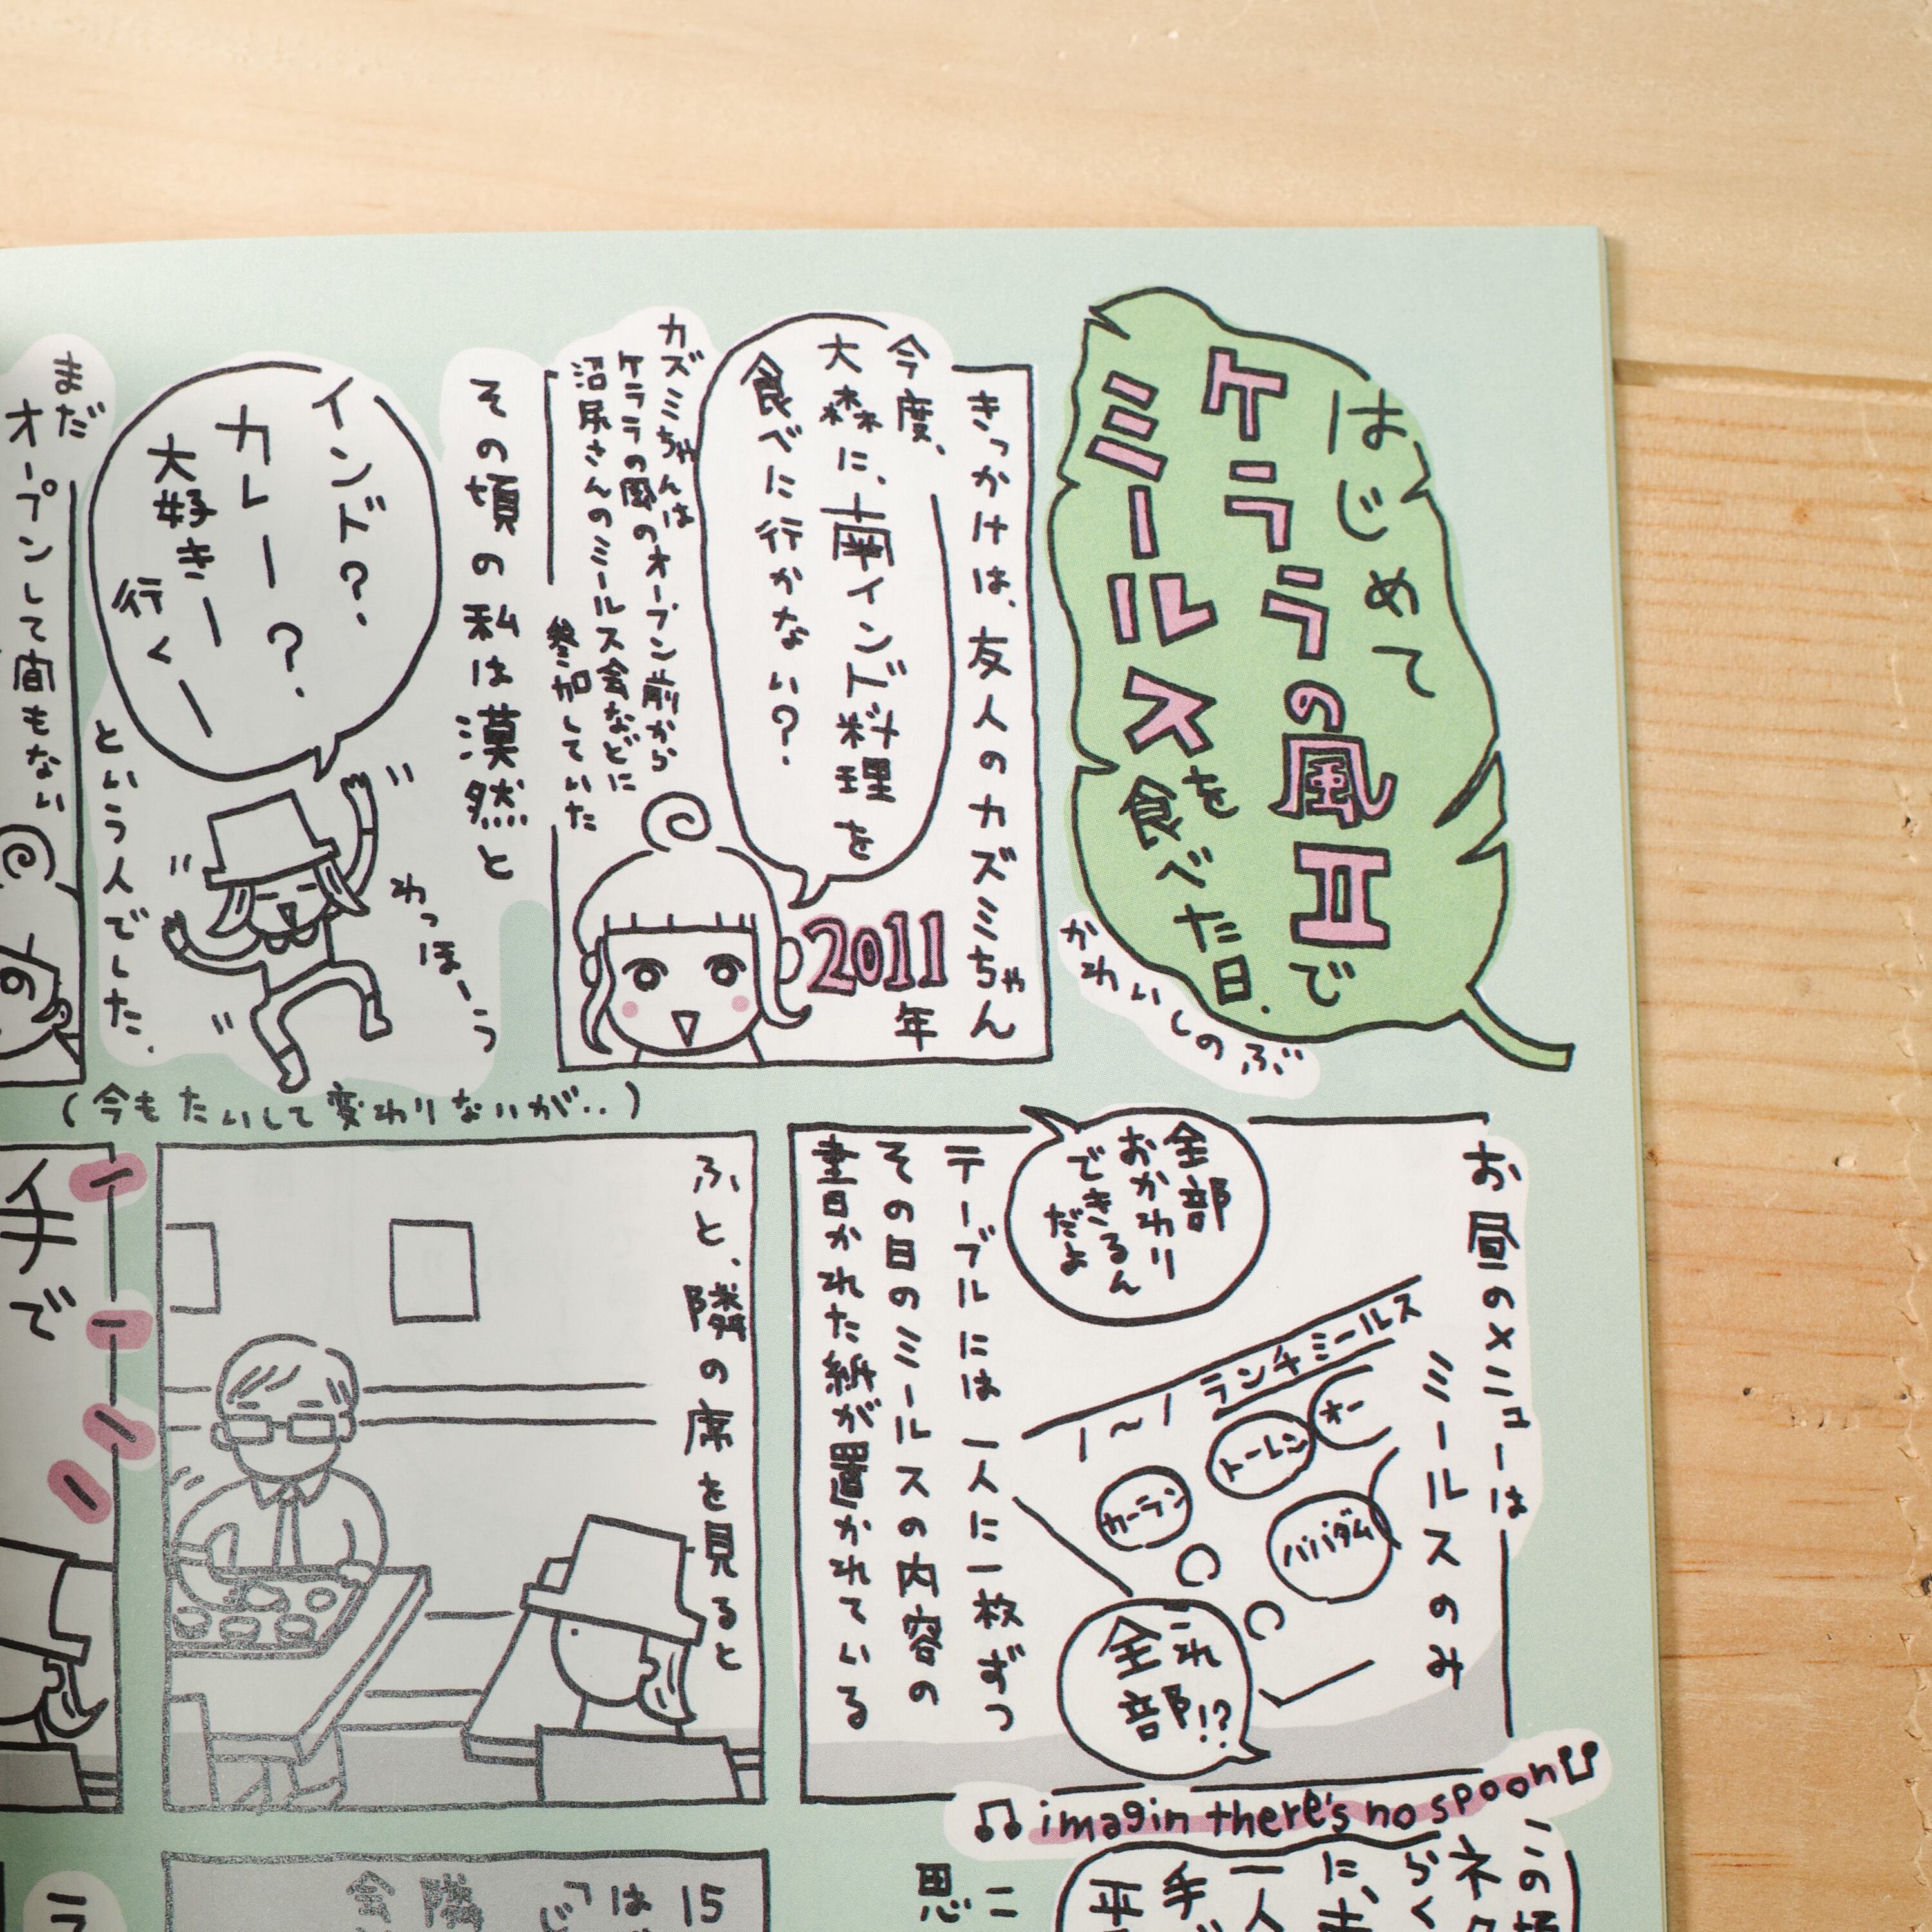 はじめて
ケララの風Ⅱで
ミールスを
食べた日.
かわいしのぶ
きっかけは、友人のカズミちゃん
2011
年
今度、
大森に、南インド料理を
食べに行かない?
カズミちゃんは
ケララの風のオープン前から
沼尻さんのミールス会などに
参加していた
その頃の私は漠然と
インド?
カレー?
大好きー
行くー
わっほーう
という人でした.
(今もたいして変わりないが‥)
まだ
オープンして間もない
お昼のメニューは
ミールスのみ
ランチミールス
オー
トーレン
カーラン
パパダム
全部
おかわり
できるん
だよ
これ
全部!?
テーブルには一人に一枚ずつ
その日のミールスの内容の
書かれた紙が置かれている
ふと、隣の席を見ると
手で
♫ imagin there's no spoon ♫
この
らく
に、
一人
手
平
ニ
思
15
は
隣
ラ